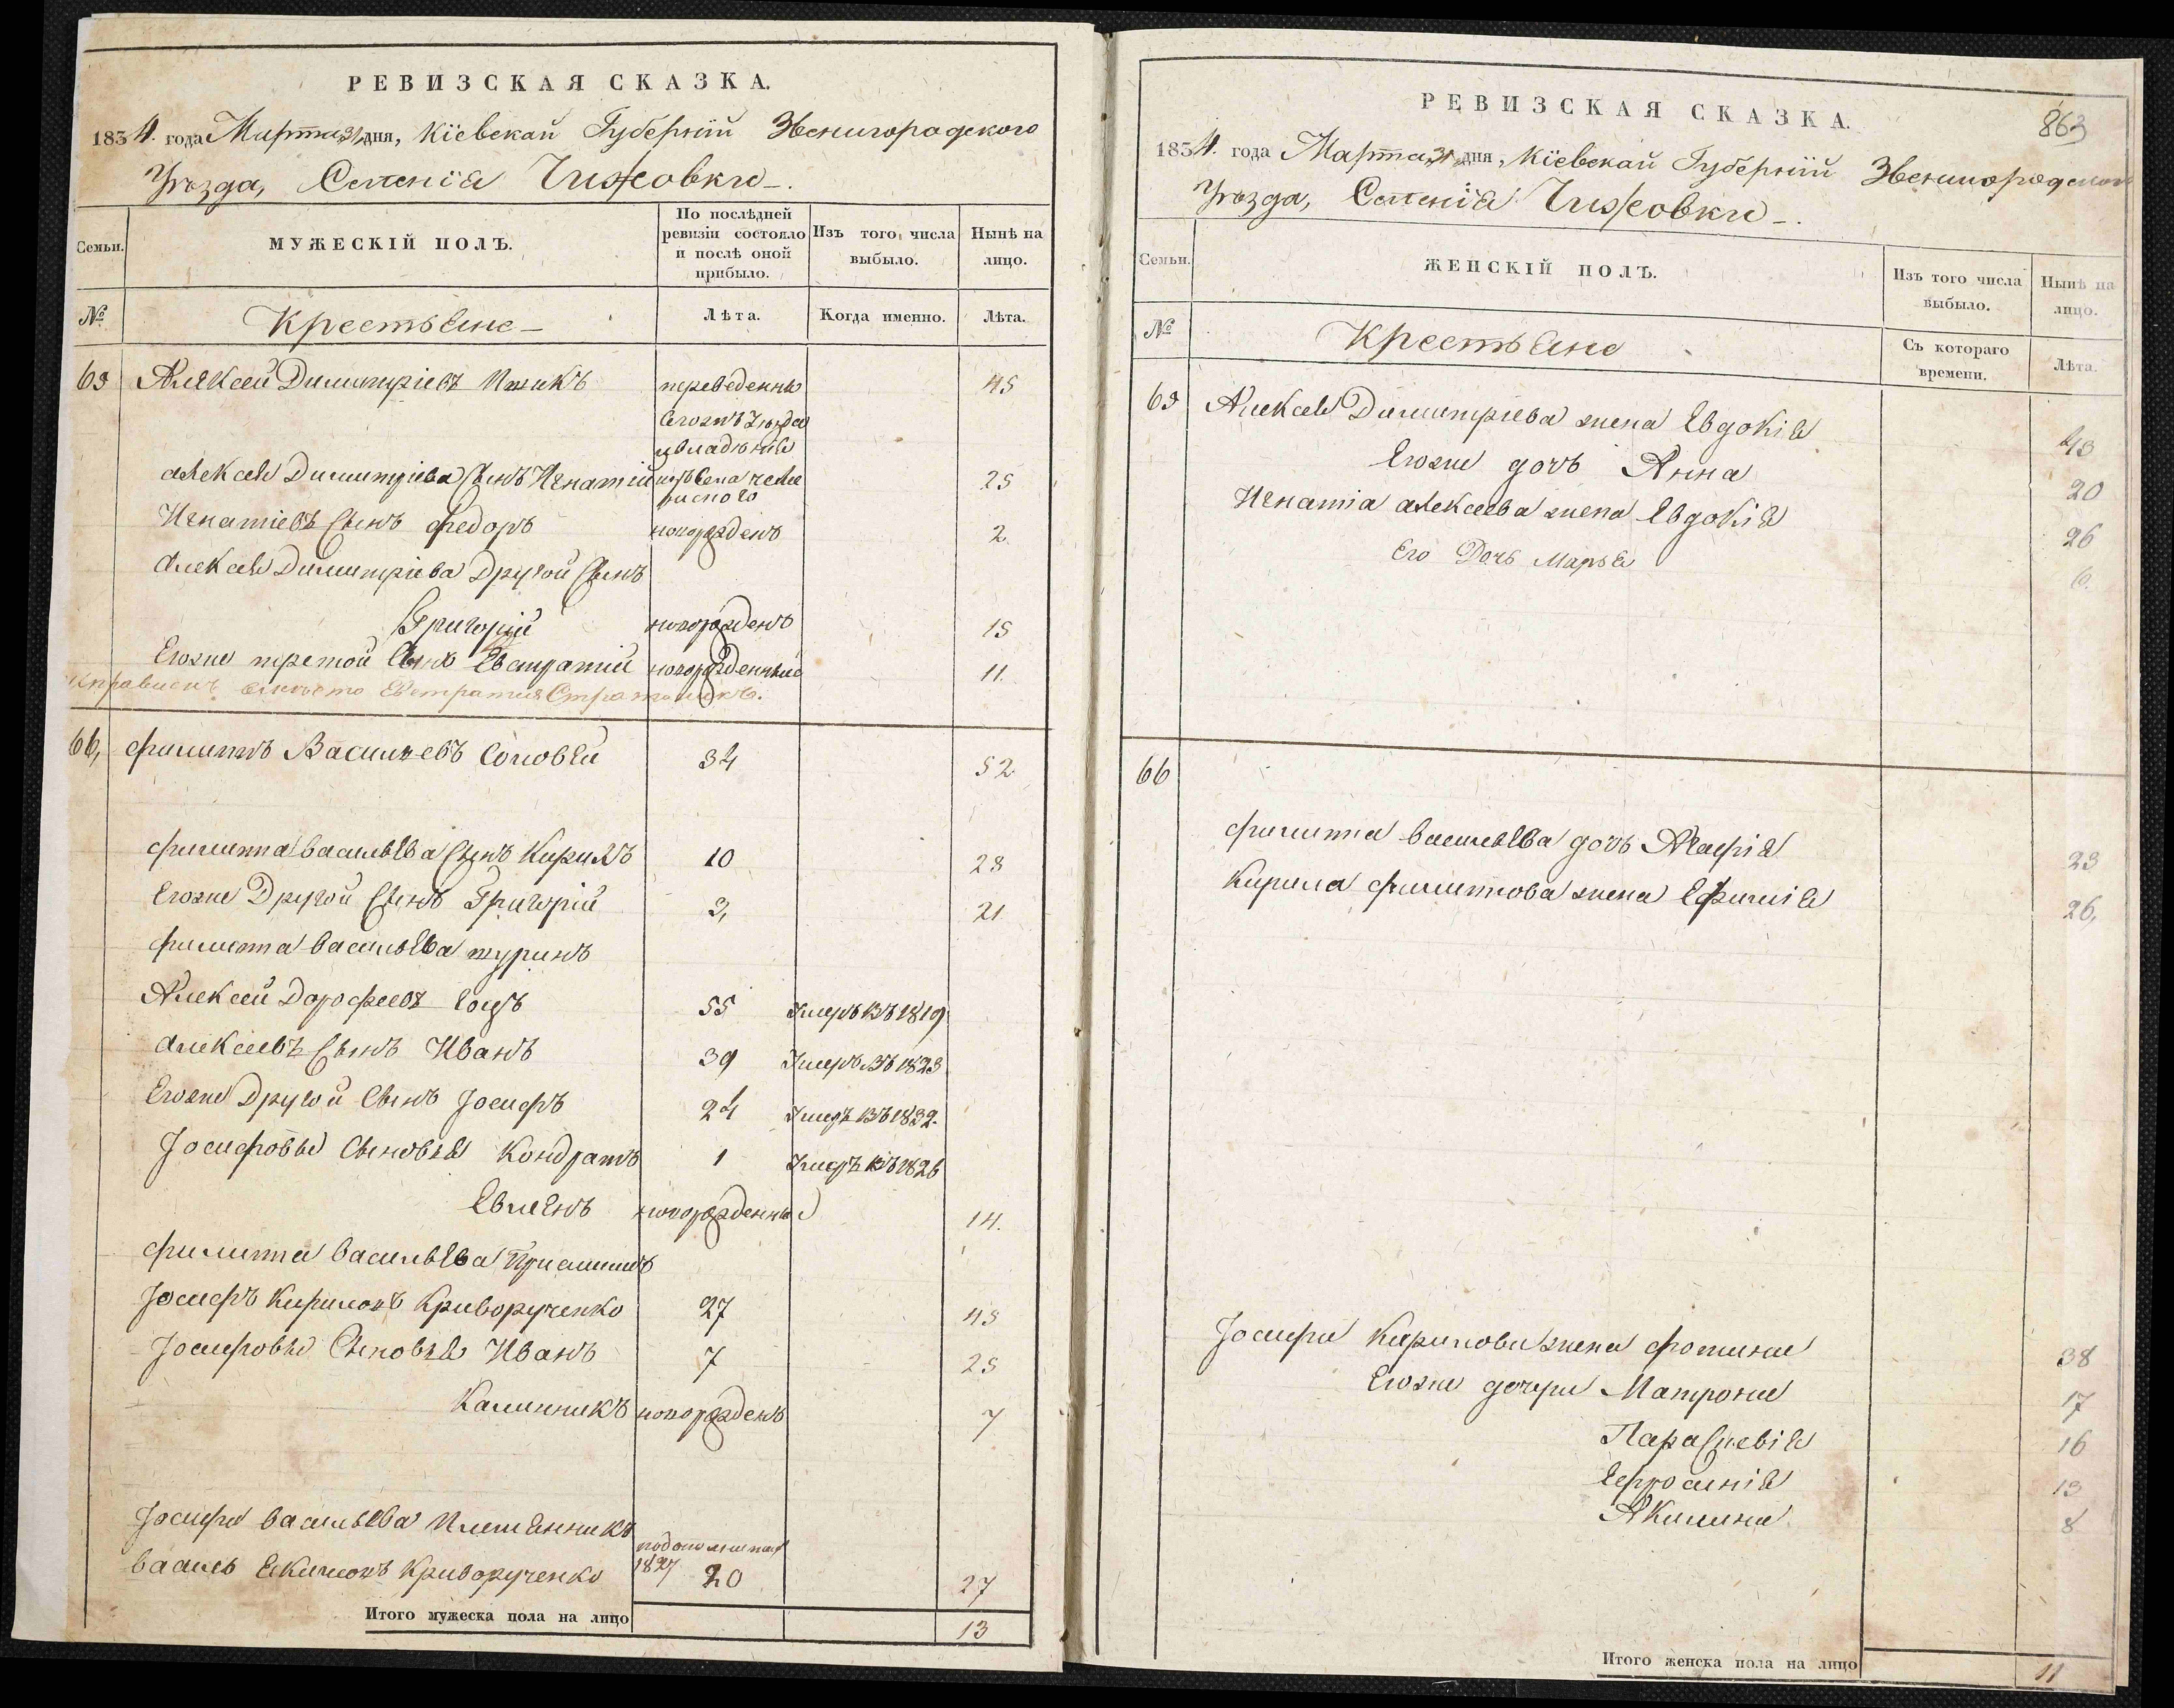 РЕВИЗСКАЯ СКАЗКА.
1834. года Марта 31 дня, Кіевской Губерніи Звенигородского
Уѣзда, Селенія Чижовки
Семьи.
МУЖЕСКІЙ ПОЛЪ.
По послѣдней ревизіи состояло и послѣ оной прибыло.
Изъ того числа выбыло.
Нынѣ на лицо.
№
Крестьяне
Лѣта.
Когда именно.
Лѣта.
65 Алексей Димитріевъ переведенны 45
Алексея Димитріева Сынъ Игнатій 25
Игнатіевъ Сынъ Федоръ новорожденъ 2
Алексея Димитріева Другой Сынъ
Григорій новорожденъ 15
Егоже третой Сынъ новорожденный 11
66, Филиппъ Васильевъ Соловей 34 52
Филиппа Васильева Сынъ Кирилъ 10 28
Егоже Другой Сынъ Григорій 3, 21
Филиппа Васильева шуринъ
Алексей Дорофеевъ 55 Умеръ въ 1819
Алексеевъ Сынъ Иванъ 39 Умеръ въ 1823
Егоже Другой Сынъ Іосифъ 24 Умеръ въ 1832.
Іосифовы Сыновья Кондратъ 1 Умеръ въ 1826
новорожденный 14.
Филиппа Васильева Приемышъ
Іосифъ Кириловъ Криворученко 27 45
Іосифовы Сыновья Иванъ 7 25
Калинникъ новорожденъ 7
Іосифа Васильева Племянникъ
Василь Криворученко 1827 20 27
Итого мужеска пола на лицо 13
863
РЕВИЗСКАЯ СКАЗКА.
1834. года Марта 31 дня, Кіевской Губерніи Звенигородского
Уѣзда, Селенія Чижовки
Семьи.
ЖЕНСКІЙ ПОЛЪ.
Изъ того числа выбыло.
Нынѣ на лицо.
№
Крестьяне
Съ котораго времени.
Лѣта.
65 Алексея Димитріева жена Евдокія 43
Егоже дочь Анна 20
Игнатія Алексеева жена Евдокія 26
Его Дочь Марья 6.
66
Филиппа Васильева дочь Агафія 23
Кирила Филиппова жена Ефимія 26,
Іосифа Кирилова жена Фотина 38
Егоже дочери Матрона 17
Параскевія 16
Ефросинія 13
Акилина 8
Итого женска пола на лицо 11